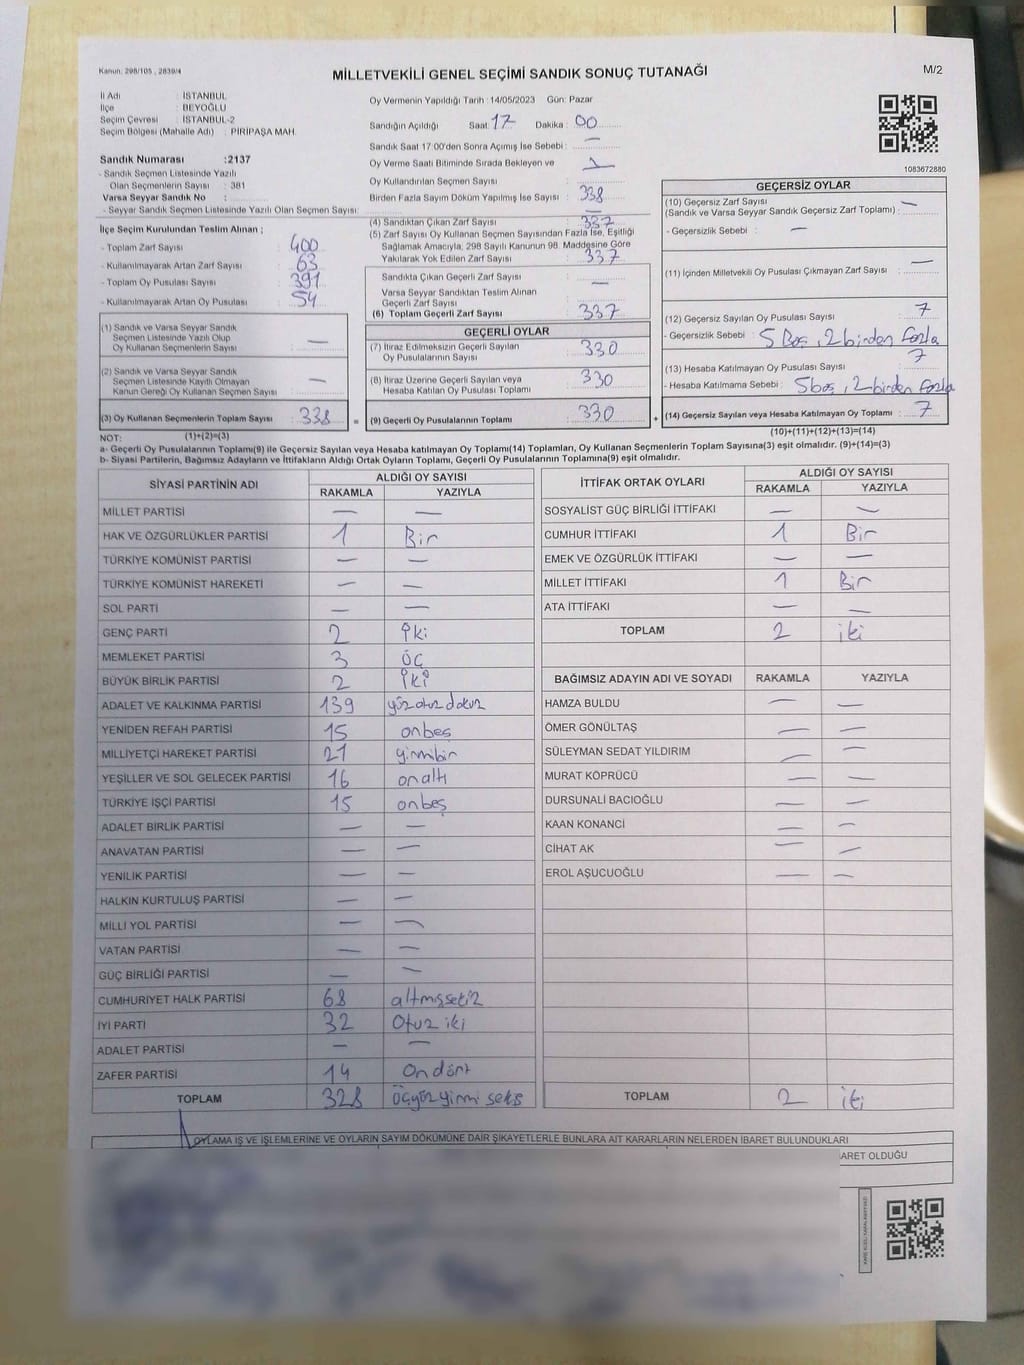 Kanun: 298/105 , 2839/4
MİLLETVEKİLİ GENEL SEÇİMİ SANDIK SONUÇ TUTANAĞI
M/2
İl Adı : İSTANBUL
İlçe : BEYOĞLU
Seçim Çevresi : İSTANBUL-2
Seçim Bölgesi (Mahalle Adı) : PİRİPAŞA MAH.
Sandık Numarası :2137
- Sandık Seçmen Listesinde Yazılı
Olan Seçmenlerin Sayısı : 381
Varsa Seyyar Sandık No :
- Seyyar Sandık Seçmen Listesinde Yazılı Olan Seçmen Sayısı:
İlçe Seçim Kurulundan Teslim Alınan ;
- Toplam Zarf Sayısı : 400
- Kullanılmayarak Artan Zarf Sayısı : 63
- Toplam Oy Pusulası Sayısı : 391
- Kullanılmayarak Artan Oy Pusulası : 54
(1) Sandık ve Varsa Seyyar Sandık
Seçmen Listesinde Yazılı Olup
Oy Kullanan Seçmenlerin Sayısı : —
(2) Sandık ve Varsa Seyyar Sandık
Seçmen Listesinde Kayıtlı Olmayan
Kanun Gereği Oy Kullanan Seçmen Sayısı : —
(3) Oy Kullanan Seçmenlerin Toplam Sayısı : 338
(1)+(2)=(3)
Oy Vermenin Yapıldığı Tarih :14/05/2023 Gün: Pazar
Sandığın Açıldığı Saat: 17 Dakika : 00
Sandık Saat 17:00'den Sonra Açımış İse Sebebi : —
Oy Verme Saati Bitiminde Sırada Bekleyen ve
Oy Kullandırılan Seçmen Sayısı :
Birden Fazla Sayım Döküm Yapılmış İse Sayısı : 338
(4) Sandıktan Çıkan Zarf Sayısı : 337
(5) Zarf Sayısı Oy Kullanan Seçmen Sayısından Fazla İse, Eşitliği
Sağlamak Amacıyla, 298 Sayılı Kanunun 98. Maddesine Göre
Yakılarak Yok Edilen Zarf Sayısı : 337
Sandıkta Çıkan Geçerli Zarf Sayısı :
Varsa Seyyar Sandıktan Teslim Alınan
Geçerli Zarf Sayısı : —
(6) Toplam Geçerli Zarf Sayısı : 337
GEÇERLİ OYLAR
(7) İtiraz Edilmeksizin Geçerli Sayılan
Oy Pusulalarının Sayısı : 330
(8) İtiraz Üzerine Geçerli Sayılan veya
Hesaba Katılan Oy Pusulası Toplamı : 330
= (9) Geçerli Oy Pusulalarının Toplamı : 330 +
1083672880
GEÇERSİZ OYLAR
(10) Geçersiz Zarf Sayısı
(Sandık ve Varsa Seyyar Sandık Geçersiz Zarf Toplamı) : —
- Geçersizlik Sebebi : —
(11) İçinden Milletvekili Oy Pusulası Çıkmayan Zarf Sayısı : —
(12) Geçersiz Sayılan Oy Pusulası Sayısı : 7
- Geçersizlik Sebebi : 5 Boş, 2 birden fazla
(13) Hesaba Katılmayan Oy Pusulası Sayısı : 7
- Hesaba Katılmama Sebebi : 5 boş, 2 birden fazla
(14) Geçersiz Sayılan veya Hesaba Katılmayan Oy Toplamı : 7
(10)+(11)+(12)+(13)=(14)
NOT:
a- Geçerli Oy Pusulalarının Toplamı(9) ile Geçersiz Sayılan veya Hesaba katılmayan Oy Toplamı(14) Toplamları, Oy Kullanan Seçmenlerin Toplam Sayısına(3) eşit olmalıdır. (9)+(14)=(3)
b- Siyasi Partilerin, Bağımsız Adayların ve İttifakların Aldığı Ortak Oyların Toplamı, Geçerli Oy Pusulalarının Toplamına(9) eşit olmalıdır.
SİYASİ PARTİNİN ADI ALDIĞI OY SAYISI
RAKAMLA YAZIYLA
MİLLET PARTİSİ — —
HAK VE ÖZGÜRLÜKLER PARTİSİ 1 Bir
TÜRKİYE KOMÜNİST PARTİSİ — —
TÜRKİYE KOMÜNİST HAREKETİ — —
SOL PARTİ — —
GENÇ PARTİ 2 İki
MEMLEKET PARTİSİ 3 Üç
BÜYÜK BİRLİK PARTİSİ 2 İki
ADALET VE KALKINMA PARTİSİ 139 yüzotuzdokuz
YENİDEN REFAH PARTİSİ 15 onbeş
MİLLİYETÇİ HAREKET PARTİSİ 21 yirmibir
YEŞİLLER VE SOL GELECEK PARTİSİ 16 onaltı
TÜRKİYE İŞÇİ PARTİSİ 15 onbeş
ADALET BİRLİK PARTİSİ — —
ANAVATAN PARTİSİ — —
YENİLİK PARTİSİ — —
HALKIN KURTULUŞ PARTİSİ — —
MİLLİ YOL PARTİSİ — —
VATAN PARTİSİ — —
GÜÇ BİRLİĞİ PARTİSİ — —
CUMHURİYET HALK PARTİSİ 68 altmışsekiz
İYİ PARTİ 32 Otuz iki
ADALET PARTİSİ — —
ZAFER PARTİSİ 14 Ondört
TOPLAM 328 Üçyüzyirmi seks
İTTİFAK ORTAK OYLARI ALDIĞI OY SAYISI
RAKAMLA YAZIYLA
SOSYALİST GÜÇ BİRLİĞİ İTTİFAKI — —
CUMHUR İTTİFAKI 1 Bir
EMEK VE ÖZGÜRLÜK İTTİFAKI — —
MİLLET İTTİFAKI 1 Bir
ATA İTTİFAKI — —
TOPLAM 2 iki
BAĞIMSIZ ADAYIN ADI VE SOYADI RAKAMLA YAZIYLA
HAMZA BULDU — —
ÖMER GÖNÜLTAŞ — —
SÜLEYMAN SEDAT YILDIRIM — —
MURAT KÖPRÜCÜ — —
DURSUNALİ BACIOĞLU — —
KAAN KONANCİ — —
CİHAT AK — —
EROL AŞUCUOĞLU — —
TOPLAM 2 iki
OYLAMA İŞ VE İŞLEMLERİNE VE OYLARIN SAYIM DÖKÜMÜNE DAİR ŞİKAYETLERLE BUNLARA AİT KARARLARIN NELERDEN İBARET BULUNDUKLARI
ARET OLDUĞU